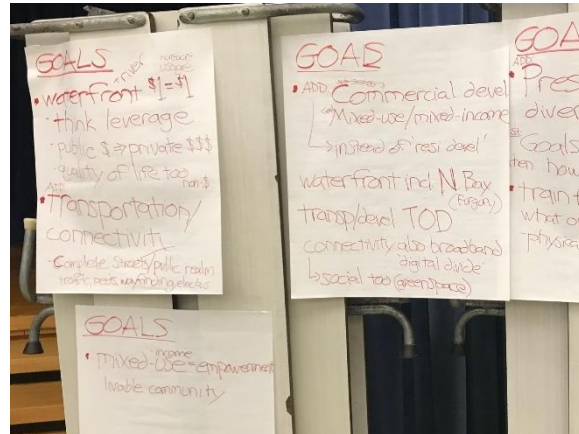 GOALS
• waterfront + river $1=$1
· think leverage
· public $ ⇒ private $$$
· quality of life too
non-$
ADD
• Transportation/
connectivity
· Complete Streets/public realm
traffic, peds, wayfinding,
GOALS
• mixed-use = empowerment
income
livable community
GOALS
• ADD Commercial devel
Mixed-use/mixed-income
↳ instead of 'resi devel'
waterfront incl N Bay
transp/devel TOD
connectivity also broadband
'digital divide'
↳ social too (green space)
GOA
ADD
• Pres
dive
Goals
ten how
• train t
what o
physica